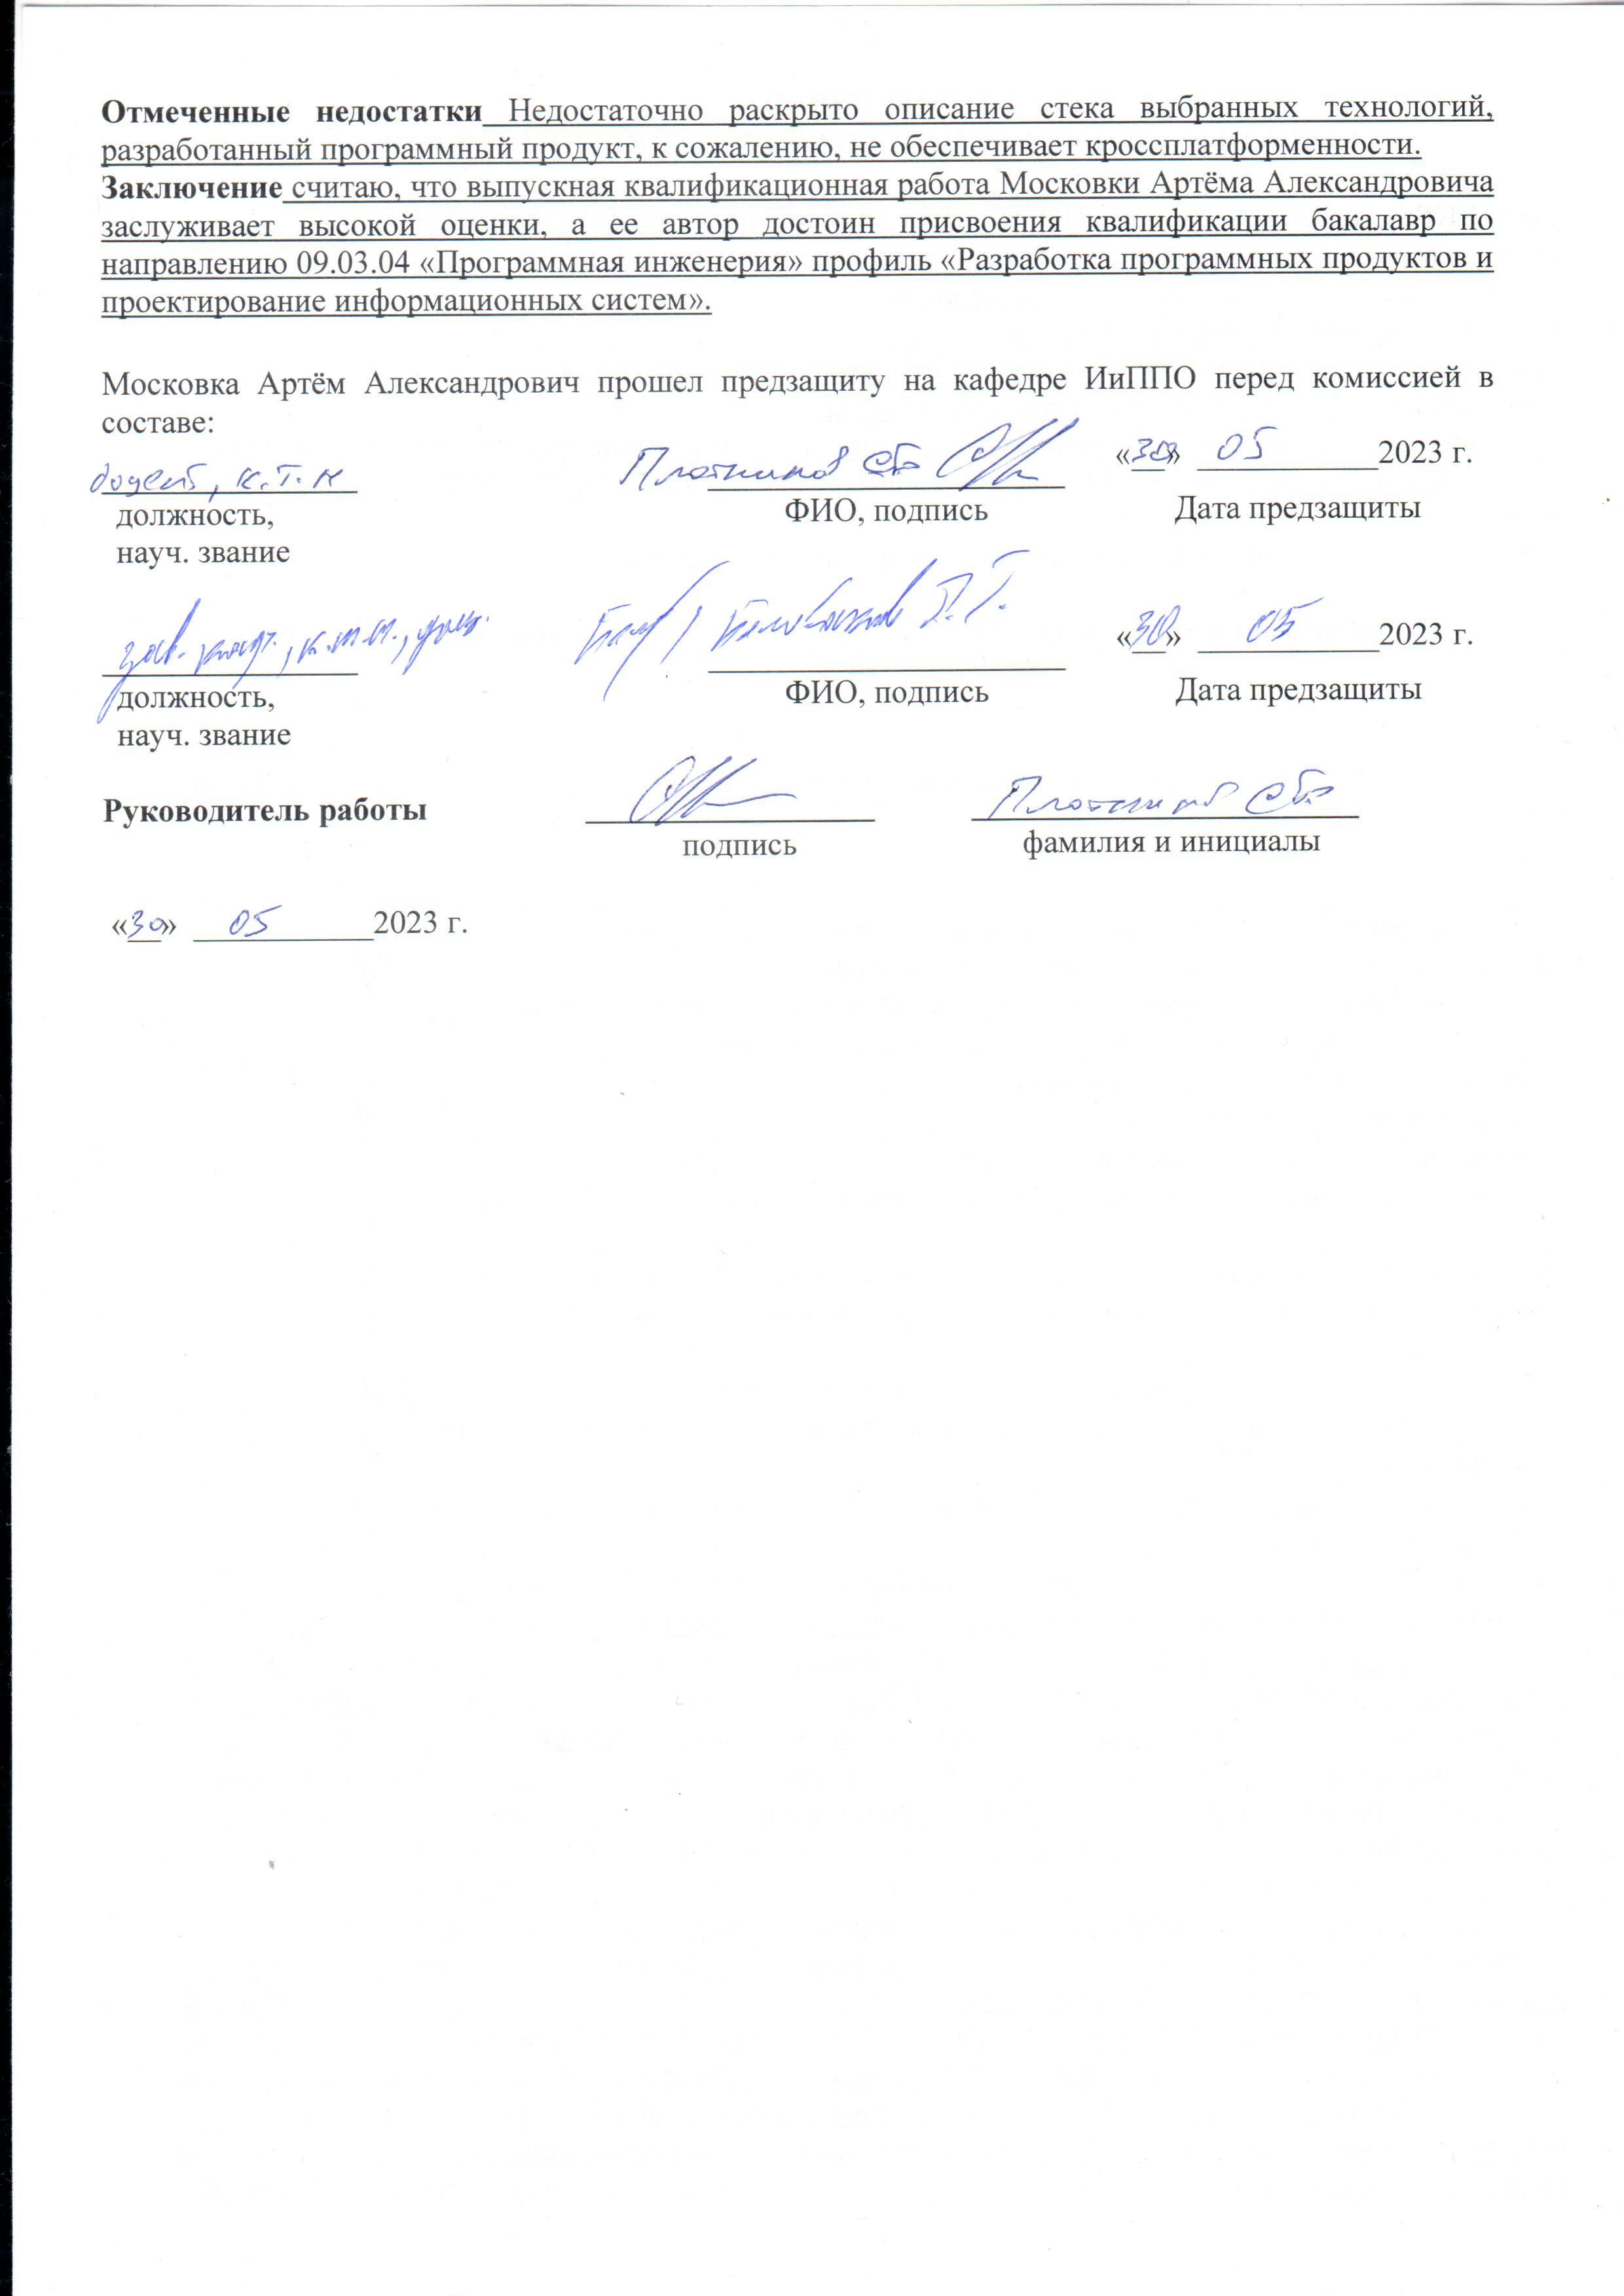 Отмеченные недостатки Недостаточно раскрыто описание стека выбранных технологий,
разработанный программный продукт, к сожалению, не обеспечивает кроссплатформенности.
Заключение считаю, что выпускная квалификационная работа Московки Артёма Александровича
заслуживает высокой оценки, а ее автор достоин присвоения квалификации бакалавр по
направлению 09.03.04 «Программная инженерия» профиль «Разработка программных продуктов и
проектирование информационных систем».
Московка Артём Александрович прошел предзащиту на кафедре ИиППО перед комиссией в
составе:
доцент, к.т.н Плотников СБ «30» 05 2023 г.
должность, ФИО, подпись Дата предзащиты
науч. звание
зав. каф., к.т.н., доц. «30» 05 2023 г.
должность, ФИО, подпись Дата предзащиты
науч. звание
Руководитель работы Плотников СБ
подпись фамилия и инициалы
«30» 05 2023 г.